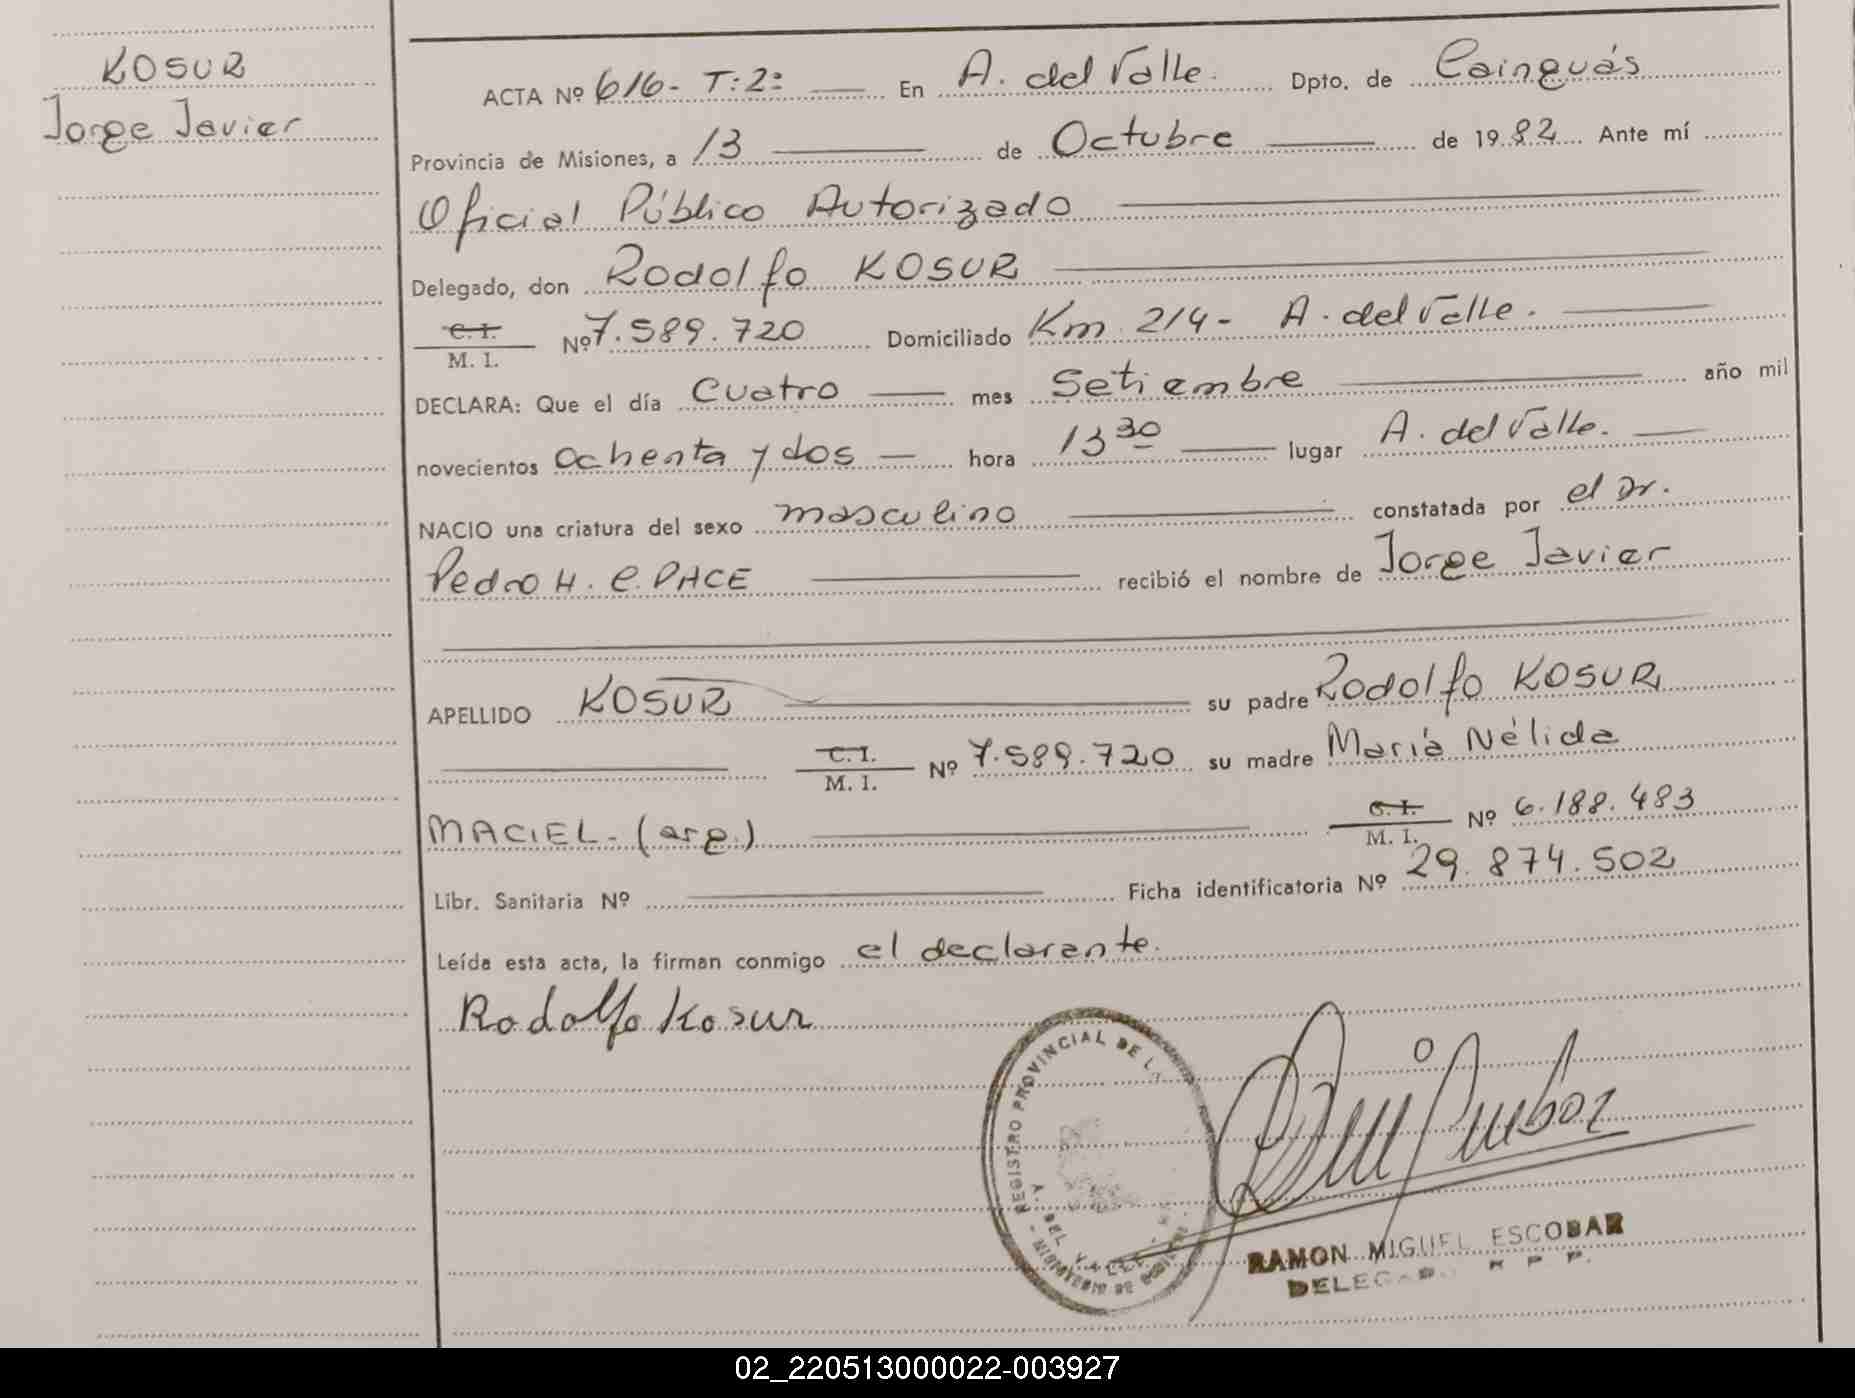 KOSUR
Jorge Javier
ACTA Nº 616- T:2º En A. del Valle. Dpto. de Cainguás
Provincia de Misiones, a 13 de Octubre de 1982 Ante mí
Oficial Público Autorizado
Delegado, don Rodolfo KOSUR
C. I.
M. I. Nº 7.589.720 Domiciliado Km 214- A. del Valle.
DECLARA: Que el día cuatro mes Setiembre año mil
novecientos ochenta y dos hora 13 30 lugar A. del Valle.
NACIO una criatura del sexo masculino constatada por el Dr.
Pedro H. C. PACE recibió el nombre de Jorge Javier
APELLIDO KOSUR su padre Rodolfo KOSUR
C. I.
M. I. Nº 7.589.720 su madre María Nélida
MACIEL - (arg.) C. I.
M. I. Nº 6.188.483
Libr. Sanitaria Nº Ficha identificatoria Nº 29.874.502
Leída esta acta, la firman conmigo el declarante.
Rodolfo Kosur
REGISTRO PROVINCIAL DE LA
A. DEL VALLE
RAMON MIGUEL ESCOBAR
02_220513000022-003927